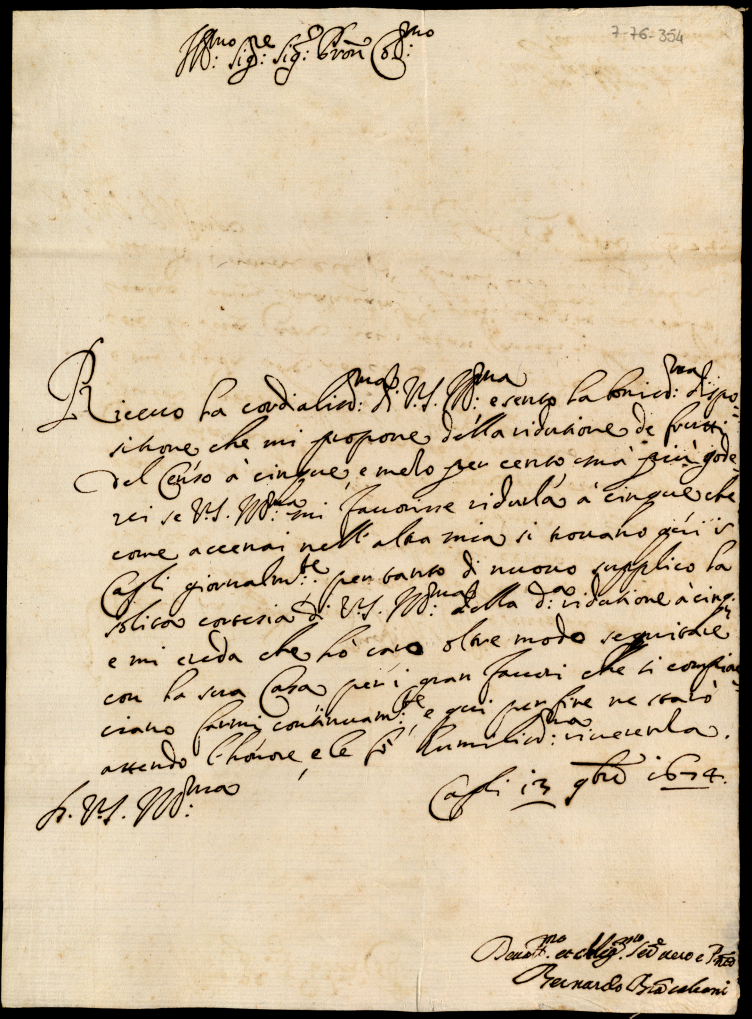 7-76-354
Ill:mo Sig:re Sig:e Pron Col:mo
Riceuo la cordialiss:ma di V.S. Ill:ma e sento la boniss:ma dispo:
sitione che mi propone della riduzione de frutti
del Censo à cinque, e mezo per cento mà più gode:
rei se V.S. Ill:ma mi fauorisse ridurla à cinque che
come accenai nell'altra mia si trouano quì in
Cagli giornalm:te pertanto di nuouo supplico la
solita cortesia di V.S. Ill:ma della d:a riduzione à cinq:
e mi creda che hò caro oltre modo seguitare
con la sua Casa per i gran fauori che si compia:
ciano farmi continuam:te, e quì per fine ne starò
attendo l'honore, e le fò humiliss:ma riuerenza.
Di V.S. Ill:ma
Cagli 13 9bre 1674.
Deuot:mo et Oblig:mo Ser:e uero e
Bernardo Brancaleoni